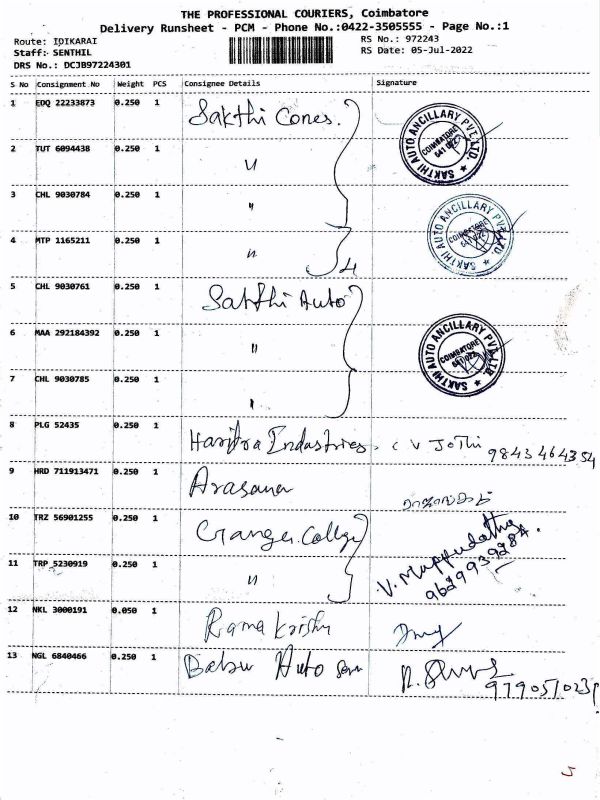 THE PROFESSIONAL COURIERS, Coimbatore
Delivery Runsheet - PCM - Phone No.:0422-3505555 - Page No.:1
Route: IDIKARAI
RS No.: 972243
Staff: SENTHIL
RS Date: 05-Jul-2022
DRS No.: DCJB97224301
S No Consignment No Weight PCS Consignee Details Signature
1 EDQ 22233873 0.250 1 Sakthi Cones.
SAKTHI AUTO ANCILLARY PVT. LTD. COIMBATORE 641 022
2 TUT 6094438 0.250 1 "
3 CHL 9030784 0.250 1 "
SAKTHI AUTO ANCILLARY PVT. LTD. COIMBATORE 641 022
4 MTP 1165211 0.250 1 "
4
5 CHL 9030761 0.250 1 Sakthi Auto
6 MAA 292184392 0.250 1 "
SAKTHI AUTO ANCILLARY PVT. LTD. COIMBATORE 641 022
7 CHL 9030785 0.250 1 "
8 PLG 52435 0.250 1 Industries. C V Jothi 9843464354
9 HRD 711913471 0.250 1
10 TRZ 56901255 0.250 1 Ganga College
11 TRP 5230919 0.250 1 "
12 NKL 3000191 0.050 1 Rama Krishn
13 NGL 6840466 0.250 1 Babu Auto